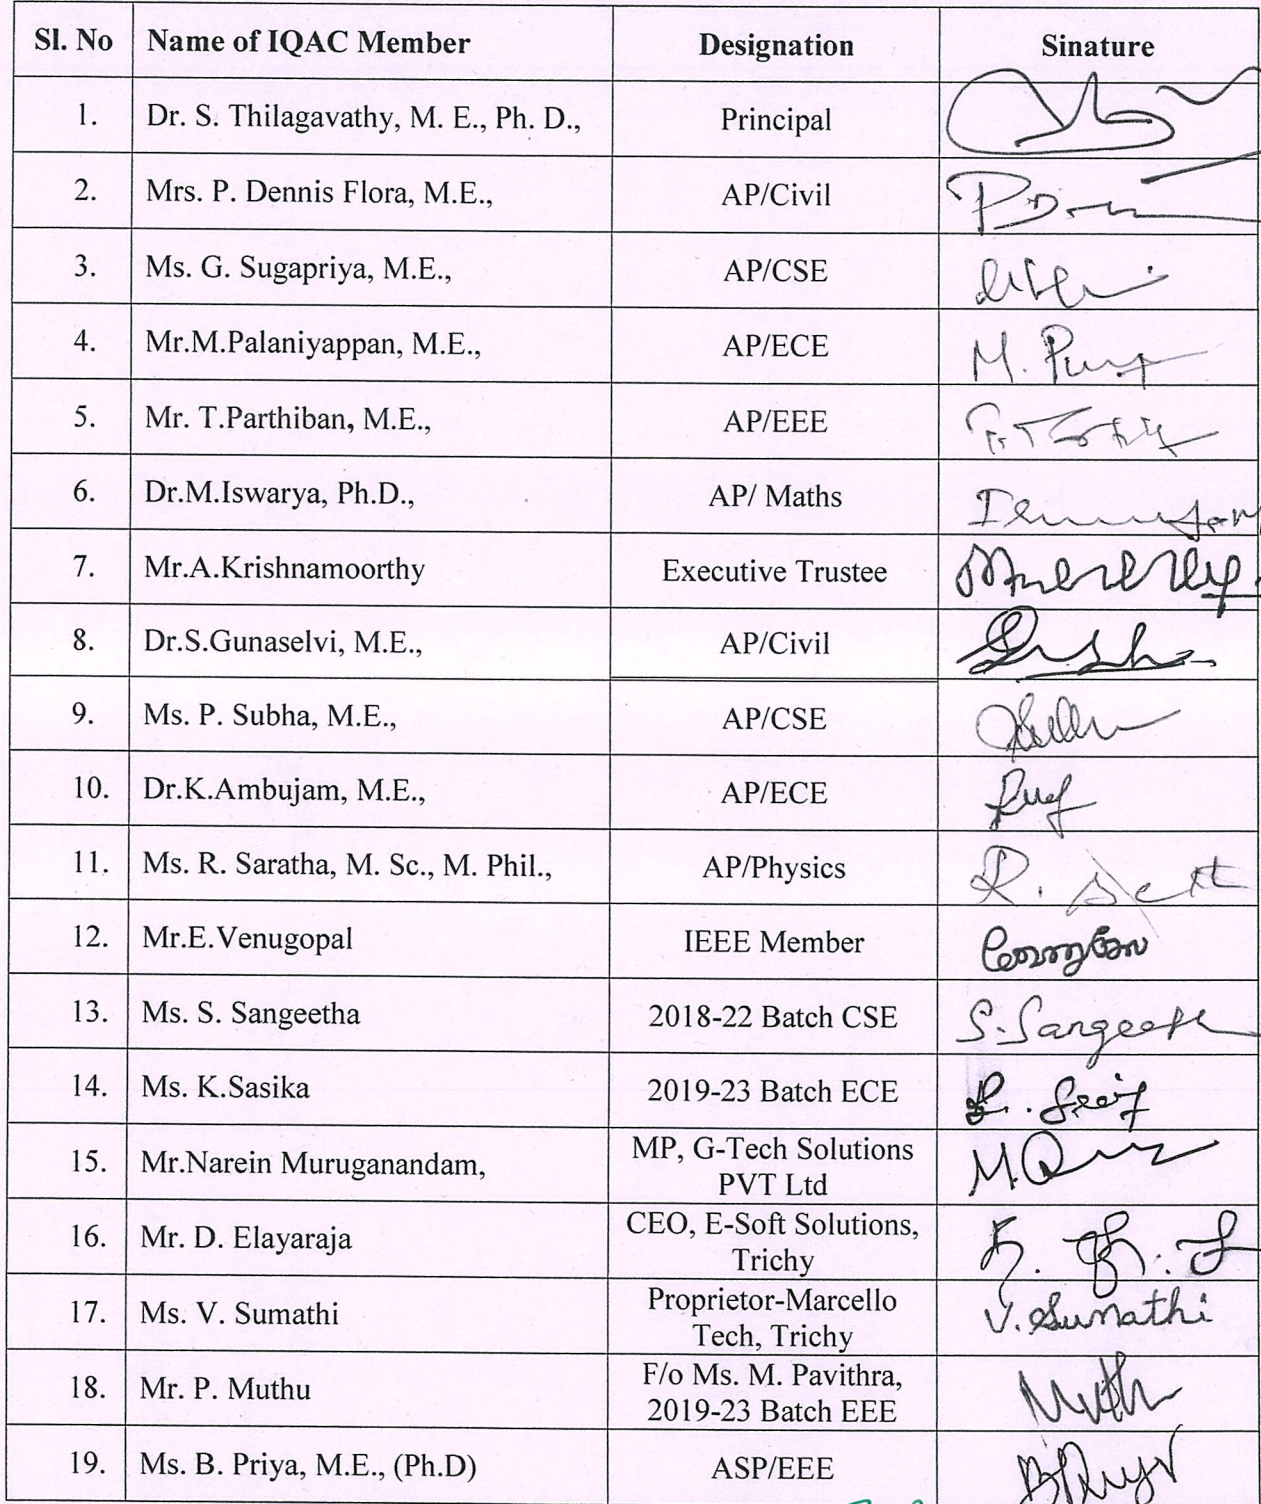 Sl. No Name of IQAC Member Designation Sinature
1. Dr. S. Thilagavathy, M. E., Ph. D., Principal
2. Mrs. P. Dennis Flora, M.E., AP/Civil
3. Ms. G. Sugapriya, M.E., AP/CSE
4. Mr.M.Palaniyappan, M.E., AP/ECE
5. Mr. T.Parthiban, M.E., AP/EEE
6. Dr.M.Iswarya, Ph.D., AP/ Maths
7. Mr.A.Krishnamoorthy Executive Trustee
8. Dr.S.Gunaselvi, M.E., AP/Civil
9. Ms. P. Subha, M.E., AP/CSE
10. Dr.K.Ambujam, M.E., AP/ECE
11. Ms. R. Saratha, M. Sc., M. Phil., AP/Physics
12. Mr.E.Venugopal IEEE Member
13. Ms. S. Sangeetha 2018-22 Batch CSE S. Sangeetha
14. Ms. K.Sasika 2019-23 Batch ECE
15. Mr.Narein Muruganandam, MP, G-Tech Solutions
PVT Ltd
16. Mr. D. Elayaraja CEO, E-Soft Solutions,
Trichy
17. Ms. V. Sumathi Proprietor-Marcello
Tech, Trichy V. Sumathi
18. Mr. P. Muthu F/o Ms. M. Pavithra,
2019-23 Batch EEE Muthu
19. Ms. B. Priya, M.E., (Ph.D) ASP/EEE